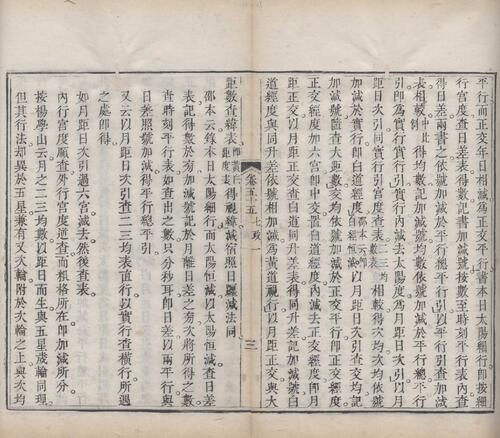 平行而正交年日相減為正交平行書本日太陽細行即按細
行宮度查日差表得數記書加減號按數至時刻平行表內查
得日差兩書之依號加減於平行得總平行以引數查初均
表相較得均數記加減號均數依號加減於平行總平行
引即為實行實引於實行內減去太陽度為月距日次引以月
距日次引同實行實引宮度查二三均數表相較得次均依號
加減於實行即白道經度以月距日次引查交均記
加減號置查大距數交均依號加減於正交平行即正交經度
正交經度加六宮即中交置白道經度內減去正交經度為月
距正交以月距正交查白道同升差表得同升差記號置白
道經度與同升差依號相加減為黃道視行以月距正交與大
卷五十五 七政一 三
距數查緯表得視緯減宿照日躔減法同
邵本云錄本日太陽細行而太陽恒減以太陽恒減查日差
表記得數於旁加減號記於月離日差之旁次將所得之數
查時刻平行表如查出之數只分秒耳即日差以兩平行與
日差照號加減得平行總平引
又云以月距日次引查二三均表直行以實行查橫行所遇
之處即得
如月距日次引過六宮減去然後查表
內行宮度順查外行宮度逆查而粗格所在即加減所分
按楊學山云月之二三均數以距日而生與五星歲輪同理
但其行法却異於五星兼有又次輪附於次輪之上與次均